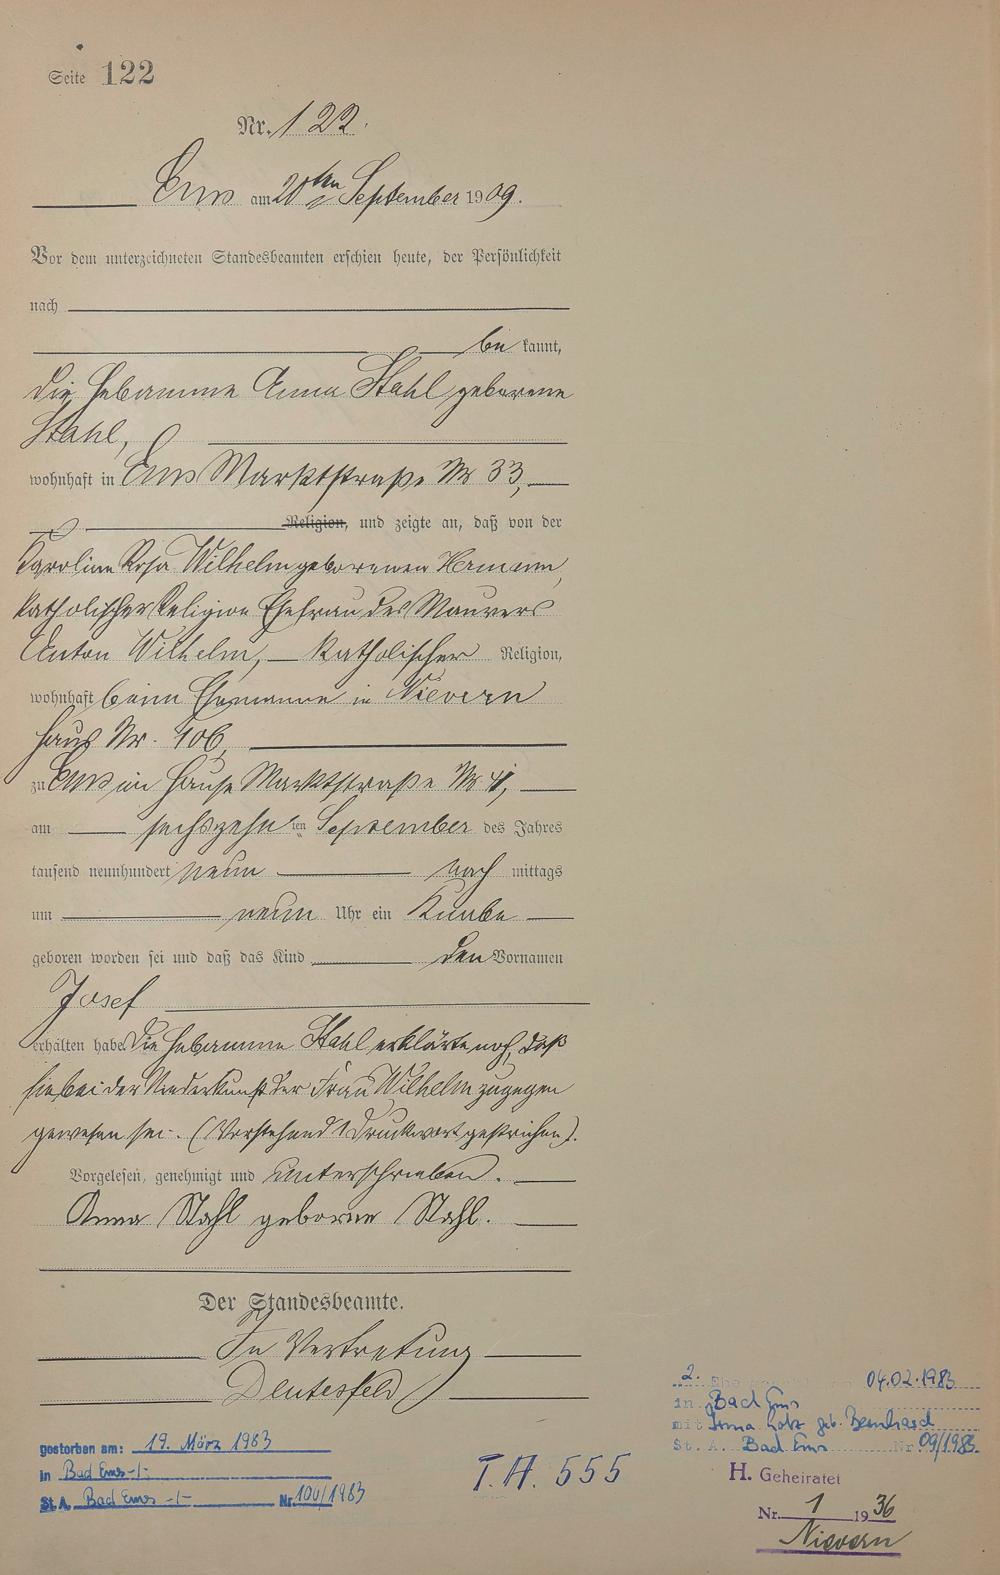 Seite 122
Nr. 122.
Ems am 20ten September 1909.
Vor dem unterzeichneten Standesbeamten erschien heute, der Persönlichkeit
nach
be kannt,
die Hebamme Anna Stahl geborene
Stahl,
wohnhaft in Ems Marktstraße Nr 33,
Religion, und zeigte an, daß von der
Karoline Rosa Wilhelm geborenen Hermann,
katholischer Religion Ehefrau des Maurers
Anton Wilhelm, katholischer Religion,
wohnhaft beim Ehemanne in Nievern
Haus Nr. 106,
zu Ems im Hause Marktstraße Nr 41,
am sechszehnten September des Jahres
tausend neunhundert neun nach mittags
um neun Uhr ein Knabe
geboren worden sei und daß das Kind den Vornamen
Josef
erhalten habe. Die Hebamme Stahl erklärte noch, daß
sie bei der Niederkunft der Frau Wilhelm zugegen
gewesen sei. (Vorstehend 1 Druckwort gestrichen).
Vorgelesen, genehmigt und unterschrieben.
Anna Stahl geborne Stahl.
Der Standesbeamte.
In Vertretung
Deutesfeld
gestorben am: 19. März 1983
in Bad Ems -/-
St.A. Bad Ems -/- Nr. 100/1983
T. A. 555
2. 04.02.1983
in Bad Ems
mit Irma Lotz geb. Bernhard
St. A. Bad Ems Nr 09/1983.
H. Geheiratet
Nr. 1 1936
Nievern